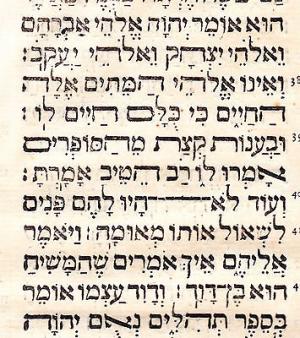 הוּא אוֹמֵר יְהוָֹה אֱלֹהֵי אַבְרָהָם
וֵאלֹהֵי יִצְחָק וֵאלֹהֵי יַעֲקֹב׃
וְאֵינוֹ אֱלֹהֵי הַמֵּתִים אֶלָּא 38
הַחַיִּים כִּי כֻלָּם חַיִּים לוֹ׃
וּבַעֲנוֹת קְצָת מֵהַסּוֹפְרִים 39
אָמְרוּ לוֹ רַב הֵטִיב אָמָרְתָּ׃
וְעוֹד לֹא הָיוּ לָהֶם פָּנִים 40
לִשְׁאוֹל אוֹתוֹ מְאוּמָה׃ וַיֹּאמֶר 41
אֲלֵיהֶם אֵיךְ אֹמְרִים שֶׁהַמָּשִׁיחַ
הוּא בֶּן־דָּוִד׃ וְדָוִד עַצְמוֹ אוֹמֵר 4
בְּסֵפֶר תְּהִלִּים נְאֻם יְהוָֹה